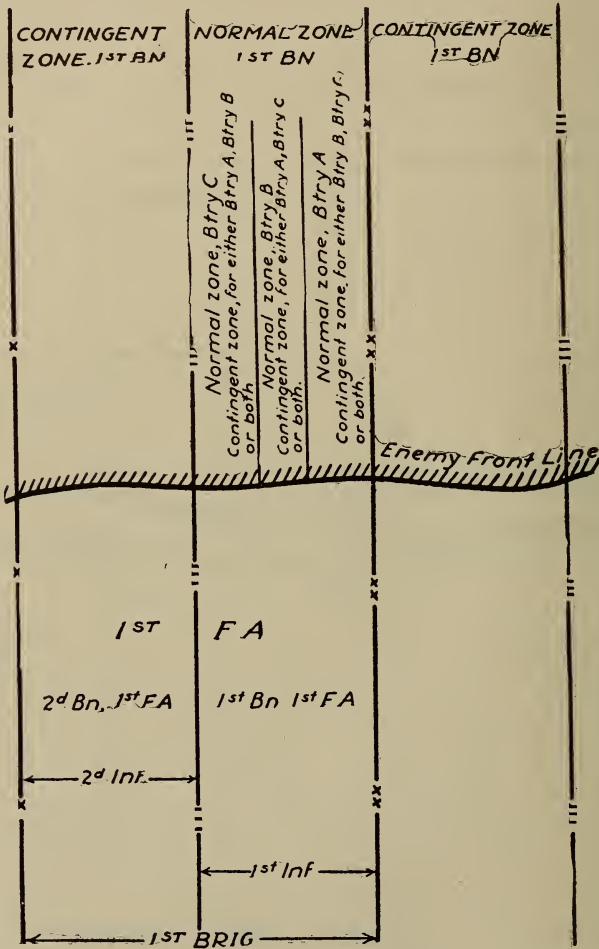 CONTINGENT
ZONE. 1ST BN
NORMAL ZONE
1ST BN
CONTINGENT ZONE
1ST BN
Normal zone, Btry C
Contingent zone, for either Btry A, Btry B
or both
Normal zone, Btry B
Contingent zone, for either Btry A, Btry C
or both.
Normal zone, Btry A
Contingent zone, for either Btry B, Btry C,
or both.
Enemy Front Line
1ST FA
2d Bn, 1st FA
1st Bn 1st FA
2d Inf
1st Inf
1ST BRIG